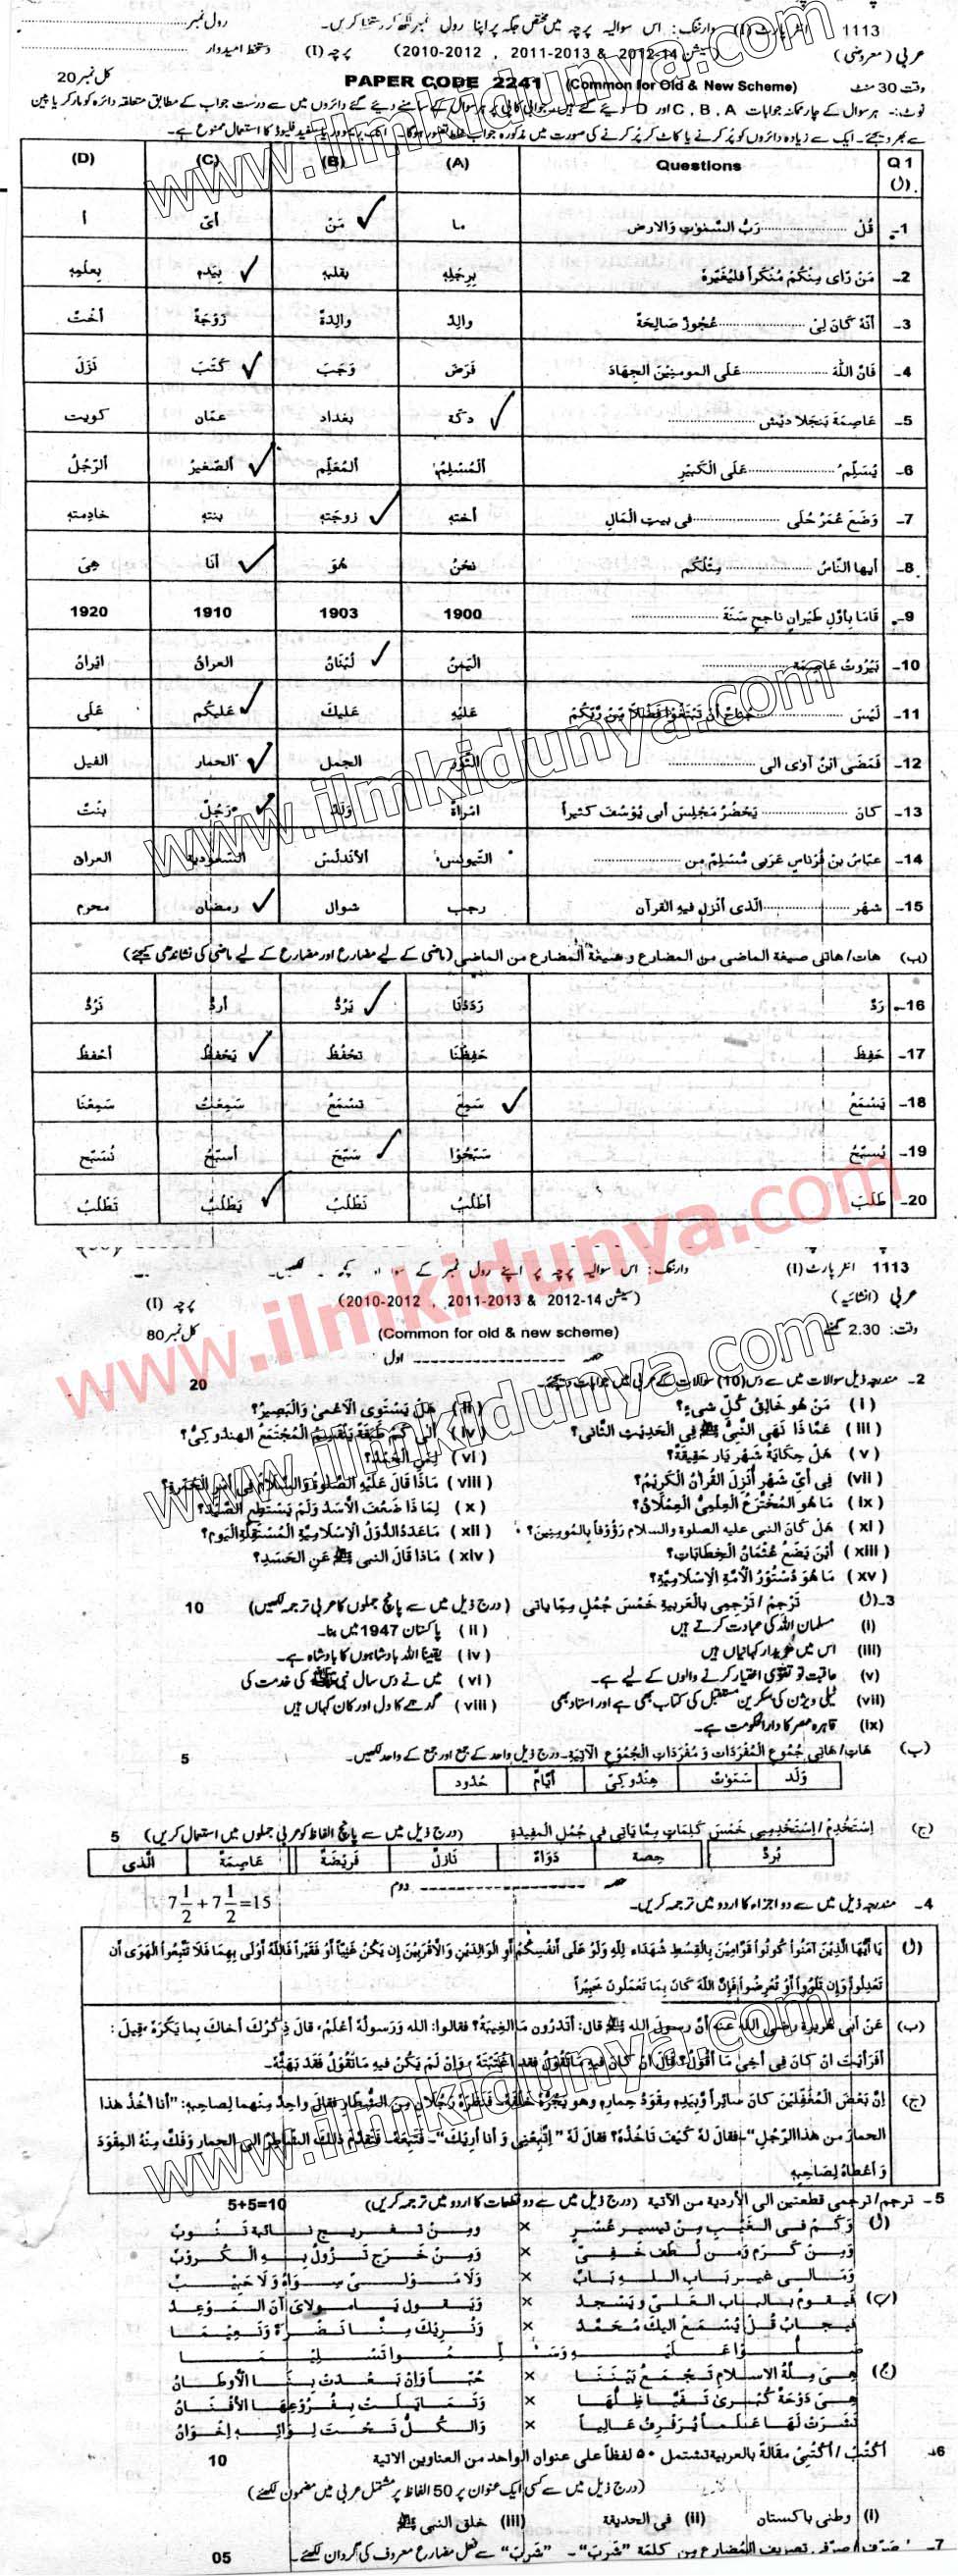 1113 انٹر پارٹ (I) وارننگ: اس سوالیہ پرچہ میں مختص جگہ پر اپنا رول نمبر لکھ کر دستخط کریں۔ رول نمبر
عربی (معروضی) (سیشن 14-2012 & 2013-2011 , 2012-2010) پرچہ (I) دستخط امیدوار
وقت 30 منٹ PAPER CODE 2241 (Common for Old & New Scheme) کل نمبر 20
نوٹ:- ہر سوال کے چار ممکنہ جوابات A ,B ,C اور D دیئے گئے ہیں۔ جوابی کاپی پر ہر سوال کے سامنے دیئے گئے دائروں میں سے درست جواب کے مطابق متعلقہ دائرہ کو مارکر یا پین
سے بھر دیجئے۔ ایک سے زیادہ دائروں کو پُر کرنے یا کاٹ کر پُر کرنے کی صورت میں مذکورہ جواب غلط تصور ہوگا۔
Q 1 Questions (A) (B) (C) (D)
1- قُلْ ........ رَبُّ السَّمٰوٰتِ وَالارض ما مَنْ أىّ أ
2- مَنْ رَأى مِنْكُمْ مُنْكَراً فليُغَيِّرْهُ بِرِجلِهٖ بقلبهٖ بِيَدِهٖ بِعلمِهٖ
3- أنَّهُ كَانَ لِيْ ........ عُجُوزٌ صَالِحَةٌ والِدٌ والِدَةٌ زَوْجَةٌ أخْتٌ
4- فَانَّ اللّٰهَ ........ عَلَى المومنِيْنَ الجِهَادَ فَرَضَ وَجَبَ كَتَبَ نَزَلَ
5- عَاصِمَةُ بَنجلا ديْش ........ دكة بغداد عمّان كويت
6- يُسَلِّمُ ........ عَلَى الْكَبِيْرِ اَلْمُسْلِمُ المُعَلِّم الصَّغِيْرُ الرَّجُلُ
7- وَضَعَ عُمَرُ حُلَى ........ فى بيتِ الْمَالِ أختِهٖ زوجَتِهٖ بنتِهٖ خادِمتِهٖ
8- أيها النَّاسُ ........ مِثْلُكُم نحنُ هُوَ أنَا هِىَ
9- قَامَا بِأوَّلِ طَيَرانٍ ناجحٍ سَنَةَ ........ 1900 1903 1910 1920
10- بَيْرُوتُ عَاصِمَة ........ اليَمنُ لُبْنَانُ العراقُ ايْرانُ
11- لَيْسَ ........ جُنَاحٌ أنْ تَبْتَغُوْا فَضْلاً مِّنْ رَّبِّكُمْ عَلَيْهِ عَلَيْكَ عَلَيكُم عَلَى
12- فَمَضَى ابْنُ آوٰى الى ........ الثَّوْرِ الجمل الحمار الفيل
13- كَانَ ........ يَحْضُرُ مَجْلِسَ أبى يُوْسُفَ كَثيراً امْرأةٌ وَلَدٌ رَجُلٌ بِنْتٌ
14- عبّاسُ بن فِرْناسٍ عَرَبى مُسْلِمٌ من ........ التّيونس الأندلُس السّعودية العراق
15- شهْر ........ الّذى أنزل فيهِ القرآن رجب شوال رمضان محرم
(ب) هات/هاتى صيغة الماضى من المضارع و صيغة المضارع من الماضى (ماضی کے لیے مضارع اور مضارع کے لیے ماضی کی نشاندہی کیجئے)
16- رَدَّ رَدَدْنَا يَرُدُّ أرُدُّ نَرُدُّ
17- حَفِظَ حَفِظْنَا تحْفُظُ يَحْفَظُ أحْفظُ
18- يَسْمَعُ سَمِعَ تسْمَعُ سَمِعْتُ سَمِعْنَا
19- يُسَبِّحُ سَبّحُوْا سَبَّحَ أسَبِّحُ نُسَبّح
20- طَلَبَ أطْلُبُ نَطْلُبُ يَطْلُبُ تَطْلُبُ
www.ilmkidunya.com
1113 انٹر پارٹ (I) وارننگ: اس سوالیہ پرچہ پر اپنے رول نمبر کے سوا اور کچھ نہ لکھیں۔
عربی (انشائیہ) (سیشن 14-2012 & 2013-2011 , 2012-2010) پرچہ (I)
وقت: 2.30 گھنٹے (Common for old & new scheme) کل نمبر 80
حصہ اول
2- مندرجہ ذیل سوالات میں سے دس (10) سوالات کے عربی میں جوابات دیجئے۔ 20
(i) مَنْ هُو خَالِقُ كُلِّ شىءٍ؟ (ii) هَلْ يَسْتَوِى الْاَعْمىٰ وَالْبَصِيْرُ؟
(iii) عَمَّا ذَا نَهَى النَّبِىُّ ﷺ فِى الْحَدِيْثِ الثَّانِى؟ (iv) اَلٰى كَمْ طَبَقَةً يَنْقَسِمُ الْمُجْتَمَعُ الهِنْدُوكِىُّ؟
(v) هَلْ حِكَايَةُ شَهْرِ يَار حَقِيْقَةٌ؟ (vi) لِمَنِ الْحَمْدُ؟
(vii) فِى أىِّ شَهْرٍ أُنْزِلَ القُرآنُ الْكَرِيْمُ؟ (viii) مَاذَا قَالَ عَلَيْهِ الصَّلٰوةُ وَالسَّلَامُ فِى أمْرِ الْخَمْرَةِ؟
(ix) مَا هُو الْمُخْتَرَعُ العِلْمِىُّ الْعِمْلَاقُ؟ (x) لِمَا ذَا ضَعُفَ الْاَسَدُ وَلَمْ يَسْتَطِعِ الصَّيْدَ؟
(xi) هَلْ كَانَ النبى عليه الصلوة والسلام رَؤُوْفاً بِالْمُومِنِيْنَ؟ (xii) مَا عَدَدُ الدُّوَلِ الْاِسْلَامِيَّةِ الْمُسْتَقِلَّةِ الْيَوْمَ؟
(xiii) أيْنَ يَضَعُ عُثْمَانُ الْخِطَابَاتِ؟ (xiv) مَاذَا قَالَ النبى ﷺ عَنِ الْحَسَدِ؟
(xv) مَا هُوَ دُسْتُوْرُ الْأمَّةِ الْاِسْلَامِيَّةِ؟
3-(ل) تَرْجِمْ/تَرْجِمِى بِالْعَرَبِيةِ خَمْسَ جُمَلٍ مِمَّا يَاتى (درج ذیل میں سے پانچ جملوں کا عربی ترجمہ لکھیں) 10
(i) مسلمان اللہ کی عبادت کرتے ہیں (ii) پاکستان 1947 میں بنا۔
(iii) اس میں مزیدار کہانیاں ہیں (iv) یقیناً اللہ بادشاہوں کا بادشاہ ہے۔
(v) عاقبت تو تقویٰ اختیار کرنے والوں کے لیے ہے۔ (vi) میں نے دس سال نبی ﷺ کی خدمت کی
(vii) ٹیلی ویژن کی سکرین مستقبل کی کتاب بھی ہے اور استاد بھی (viii) گدھے کا دل اور کان کہاں ہیں
(ix) قاہرہ مصر کا دارالحکومت ہے۔
(ب) هَاتِ/هَاتِى جُمُوعِ الْمُفْرَدَاتِ وَ مُفْرَدَاتِ الْجُمُوْعِ الْآتِيَةِ۔ درج ذیل واحد کے جمع اور جمع کے واحد لکھیں۔ 5
وَلَد سَمٰوٰتٌ هِنْدُوكِىٌّ أيَّامٌ حُدُود
(ج) اِسْتَخْدِمْ/اِسْتَخْدِمِى خَمْسَ كَلِمَاتٍ مِمَّا يَاتى فِى جُمَلٍ الْمفِيْدَةِ (درج ذیل میں سے پانچ الفاظ کو عربی جملوں میں استعمال کریں) 5
بُرْدٌ حِصة دَوَاءٌ نَازِلٌ فَرِيْضَةٌ عَاصِمَةٌ الَّذى
حصہ دوم
4- مندرجہ ذیل میں سے دو اجزاء کا اردو میں ترجمہ کریں۔ 7 1/2 + 7 1/2 =15
(ل) يَا أيُّهَا الَّذِيْنَ آمَنُوْا كُونُوْا قَوَّامِيْنَ بِالْقِسْطِ شُهَدَاء لِلّٰهِ وَلَوْ عَلَى أنْفُسِكُمْ أوِ الْوَالِدَيْنِ وَالْأقْرَبِيْنَ إن يَكُنْ غَنِيًّا أوْ فَقِيْراً فَاللّٰهُ أوْلَى بِهِمَا فَلَا تَتَّبِعُوْا الْهَوَى أن
تَعْدِلُوْا وَإن تَلْوُوْا أوْ تُعْرِضُوْا فَإنَّ اللّٰهَ كَانَ بِمَا تَعْمَلُونَ خَبِيْراً
(ب) عَنْ أبى هُرَيرةَ رضى الله عنه أنَّ رسولَ اللهِ ﷺ قال: أتَدْرُونَ مَا الْغِيبَةُ؟ فقالوا: الله وَرَسولُهُ أعْلَمُ، قالَ ذِكْرُكَ أخَاكَ بِما يَكْرَهُ، قِيلَ:
أفَرَأيتَ انْ كَانَ فِى أخِىْ مَا أقُولُ؟ قالَ انْ كانَ فيهِ مَا تقُولُ فقد اغْتَبْتَهُ، وَإنْ لَمْ يَكُنْ فيهِ مَا تَقُولُ فقد بَهَتَّهُ۔
(ج) إنَّ بَعْضَ الْمُغَفَّلِيْنَ كَانَ سَائِراً وَّبِيَدِهٖ مِقْوَدُ حِمارِهٖ وهو يَجُرُّهُ خَلْفَهُ۔ فَنَظَرَهُ رَجُلَانِ مِنَ الشُّطَّارِ فقالَ واحِدٌ مِّنهما لِصاحِبِهٖ: "أنا آخُذُ هذا
الحمارَ من هذا الرَّجُلِ"۔ فقالَ لهُ كَيْفَ تَاخُذُهُ؟ فقالَ لَهُ "اتَّبِعْنِىْ وَ أنا أرِيْكَ"۔ فَتَبِعَهُ۔ فَتَقَدَّمَ ذلك الشَّاطِرُ الى الحمارِ وَفَكَّ مِنْهُ المِقْوَدَ
وَ أعْطَاهُ لِصَاحِبِهٖ
5- ترجم/ترجمى قطعتين الى الأردية من الآتية (درج ذیل میں سے دو قطعات کا اردو میں ترجمہ کریں) 5+5=10
(ل) وَكَمْ فِى الْغَيْبِ مِنْ تَيسيرِ عُسْرٍ × ومِنْ تفريجِ نائبةٍ تَنُوْبُ
وَمِنْ كَرَمٍ وَمن لُطفٍ خَفِىٍّ × وَمِنْ فَرَجٍ تَزُولُ بِهِ الكُروبُ
وَمَالى غيرُ بَابِ اللهِ بَابٌ × وَلَا مَوْلًى سِوَاهُ وَلَا حَبِيْبٌ
(ب) فيقومُ بالبابِ العَلىِّ ويسْجد × ويقول يا مولاىَ آن الموْعدُ
فيجابُ قُلْ يُسْمَعْ اليكَ مُحَمَّد × وَنُرِيْكَ مِنَّا نَضْرَةً وَنَعِيْمَا
صَلُّوْا عَلَيْهِ وَسَلِّمُوْا تَسْلِيْمَا
(ج) هِىَ مِلَّةُ الاسلامِ تَجْمَعُ بَيْنَنَا × حُبًّا وَإنْ بَعُدَتْ بِنَا الْأوْطَانُ
هِىَ دَوْحَةٌ كُبْرىٰ تَفَيَّا ظِلُّهَا × وَتَمَايَلَتْ بِفُرُوْعِهَا الْأفْنَانُ
نَشَرَتْ لَهَا عَلَماً يُرَفْرِفُ عَالِياً × وَالْكُلُّ تَحْتَ لِوَائِهٖ إخْوَانُ
6- أكْتُبْ/أكْتُبِىْ مقالة بالعربية تشتمل ٥٠ لفظاً على عنوان الواحد من العناوين الاتية 10
(درج ذیل میں سے کسی ایک عنوان پر 50 الفاظ پر مشتمل عربی میں مضمون لکھئے)
(i) وطنى باكستان (ii) فى الحديقة (iii) خلق النبى ﷺ
7- صَرِّف/صرّفى تصريف المُضارع من كلمة "شَرِبَ"۔ "شَرِبَ" سے فعل مضارع معروف کی گردان لکھئے۔ 05